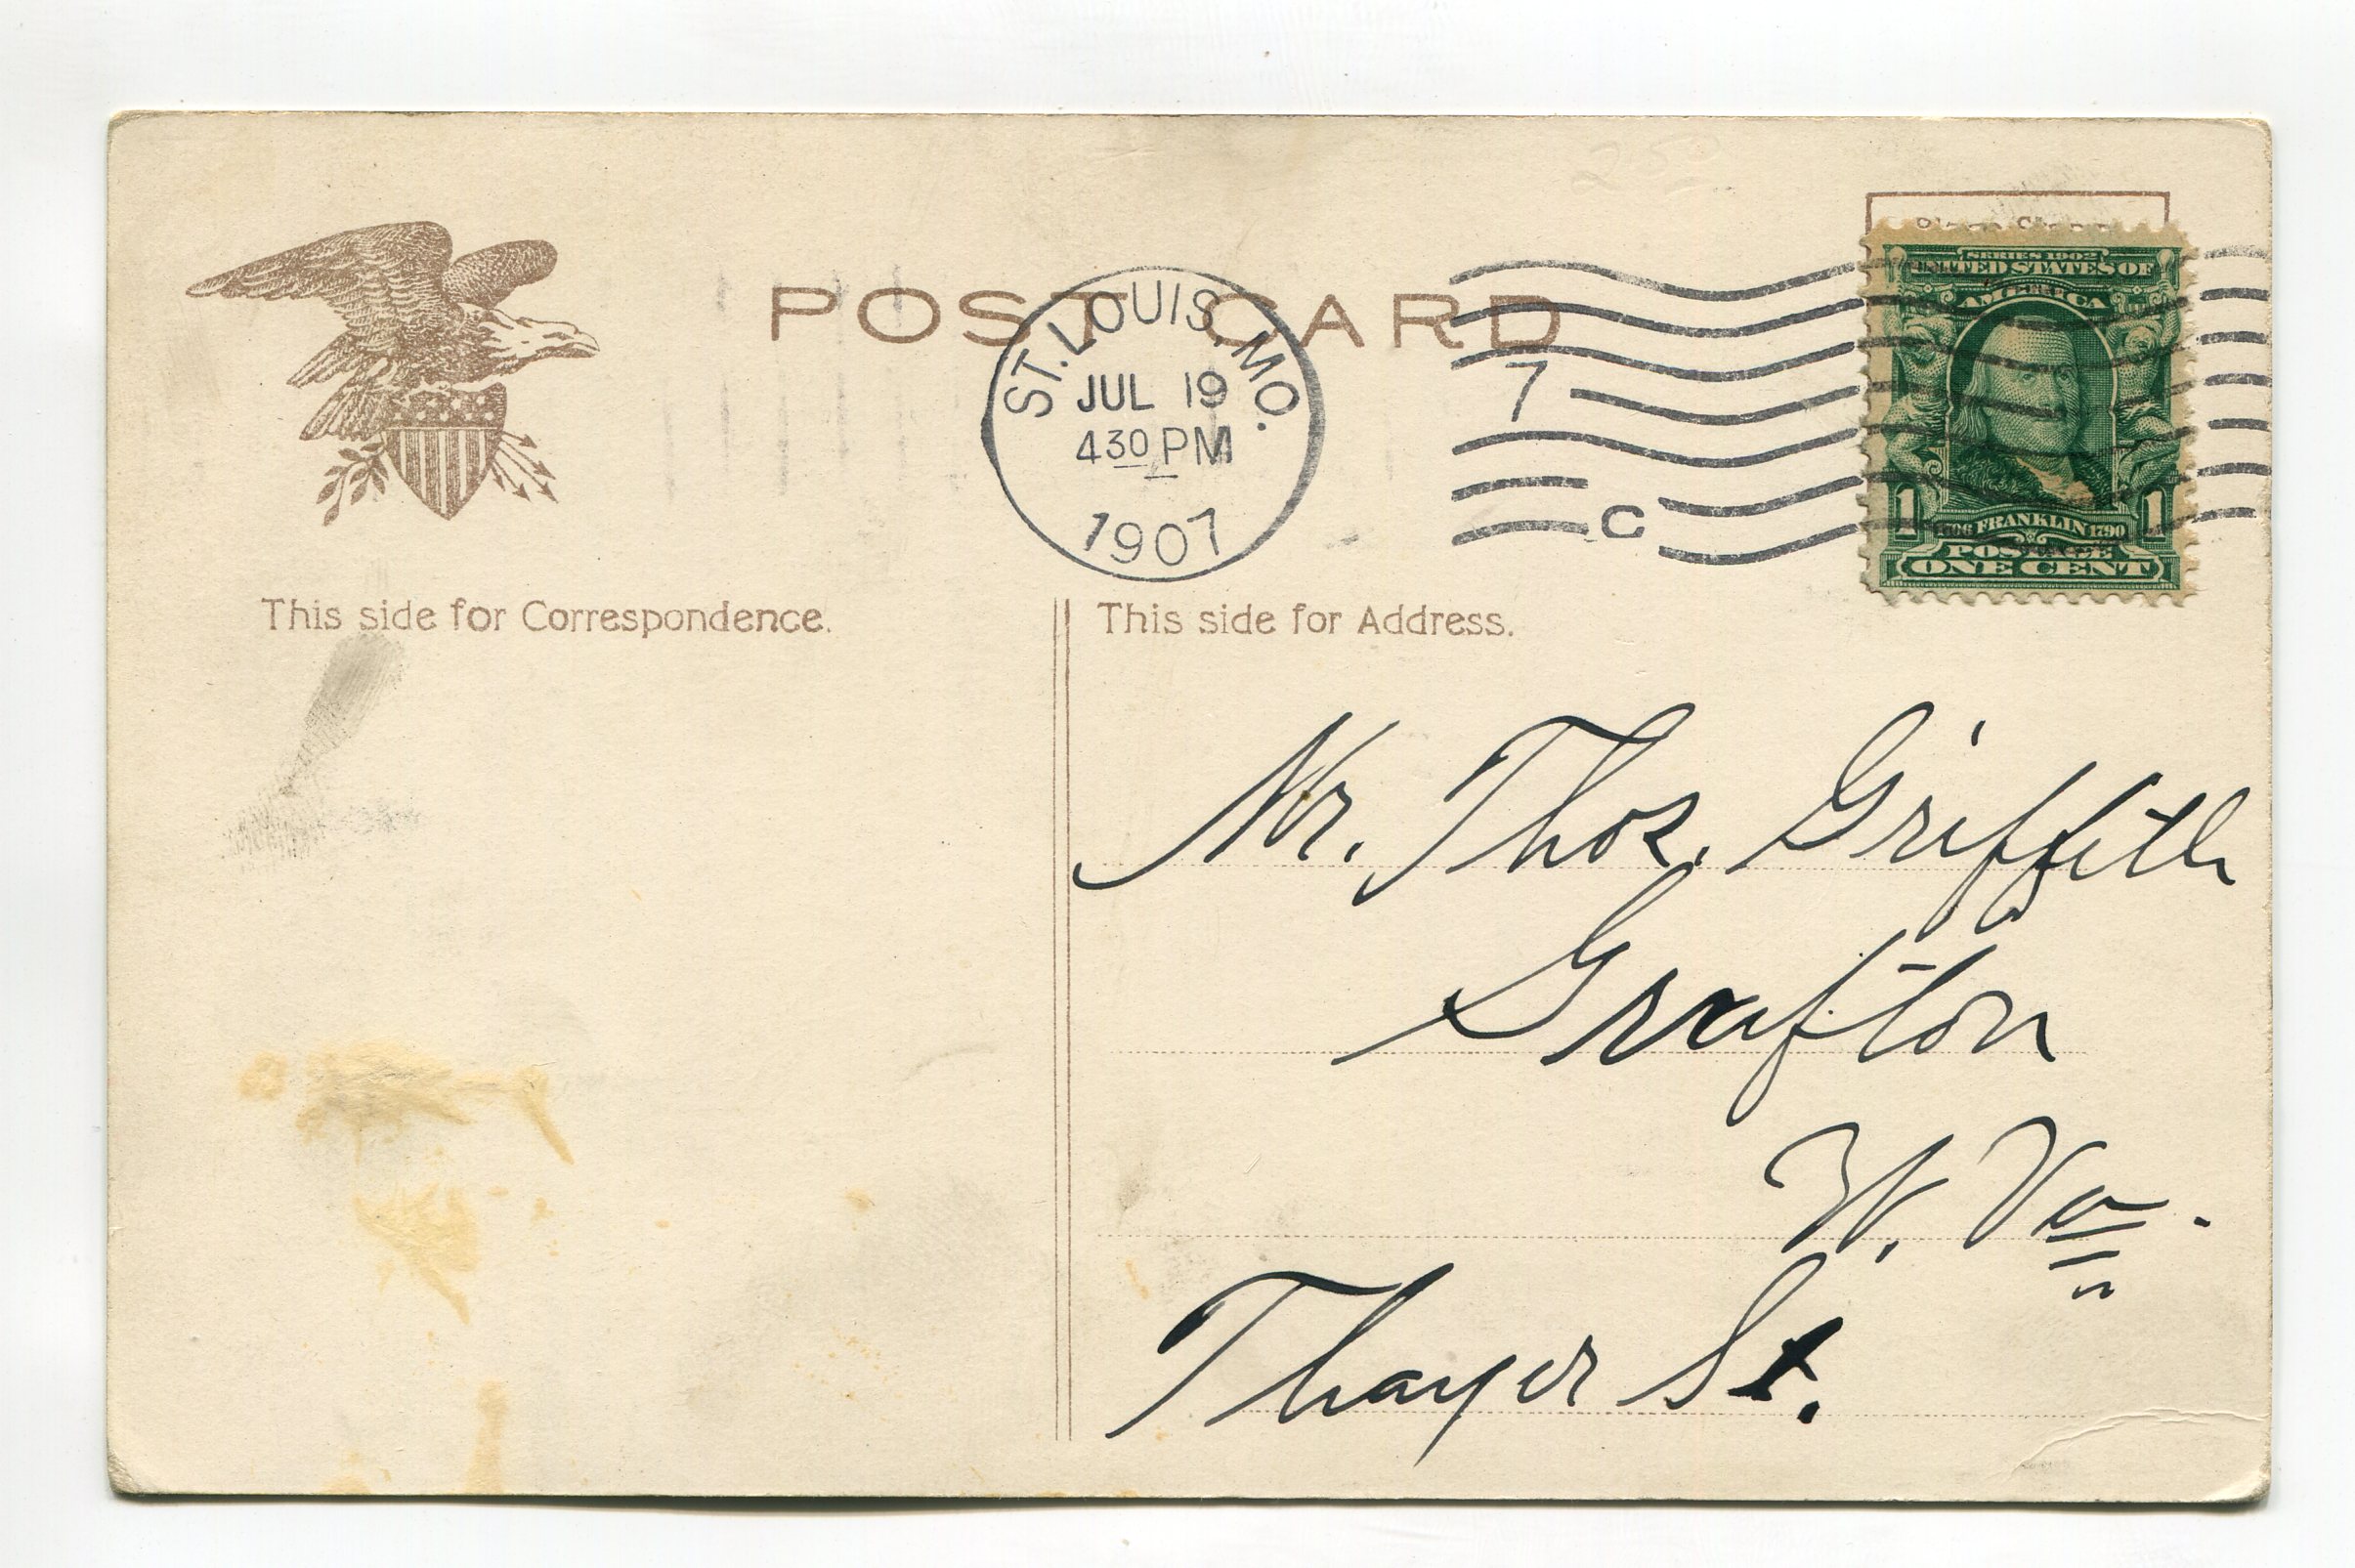 POST CARD
ST. LOUIS, MO.
JUL 19
430 PM
1907
7
C
SERIES 1902
UNITED STATES OF
AMERICA
1 1706 FRANKLIN 1790 1
POSTAGE
ONE CENT
This side for Correspondence.
This side for Address.
Mr. Thos. Griffith
Grafton
W. Va.
Thayer St.